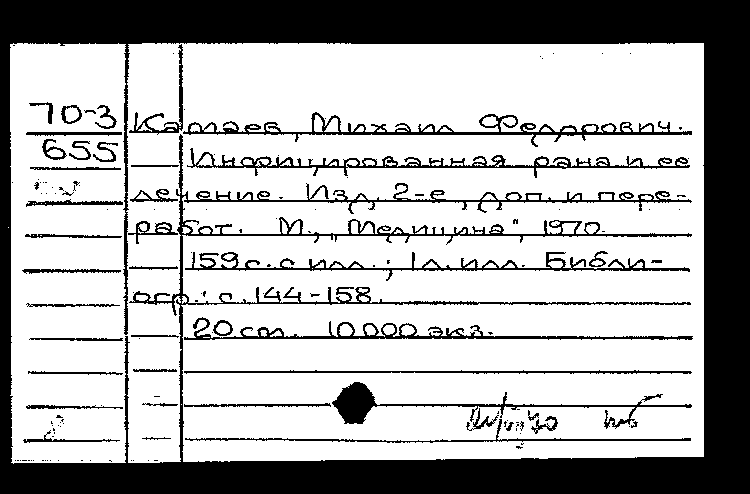 70-3 Камаев, Михаил Федорович.
655 Инфицированная рана и ее
лечение. Изд. 2-е, доп. и пере-
работ. М., "Медицина", 1970.
159 с. с илл.; 1 л. илл. Библи-
огр.: с. 144-158.
20 см. 10000 экз.
8